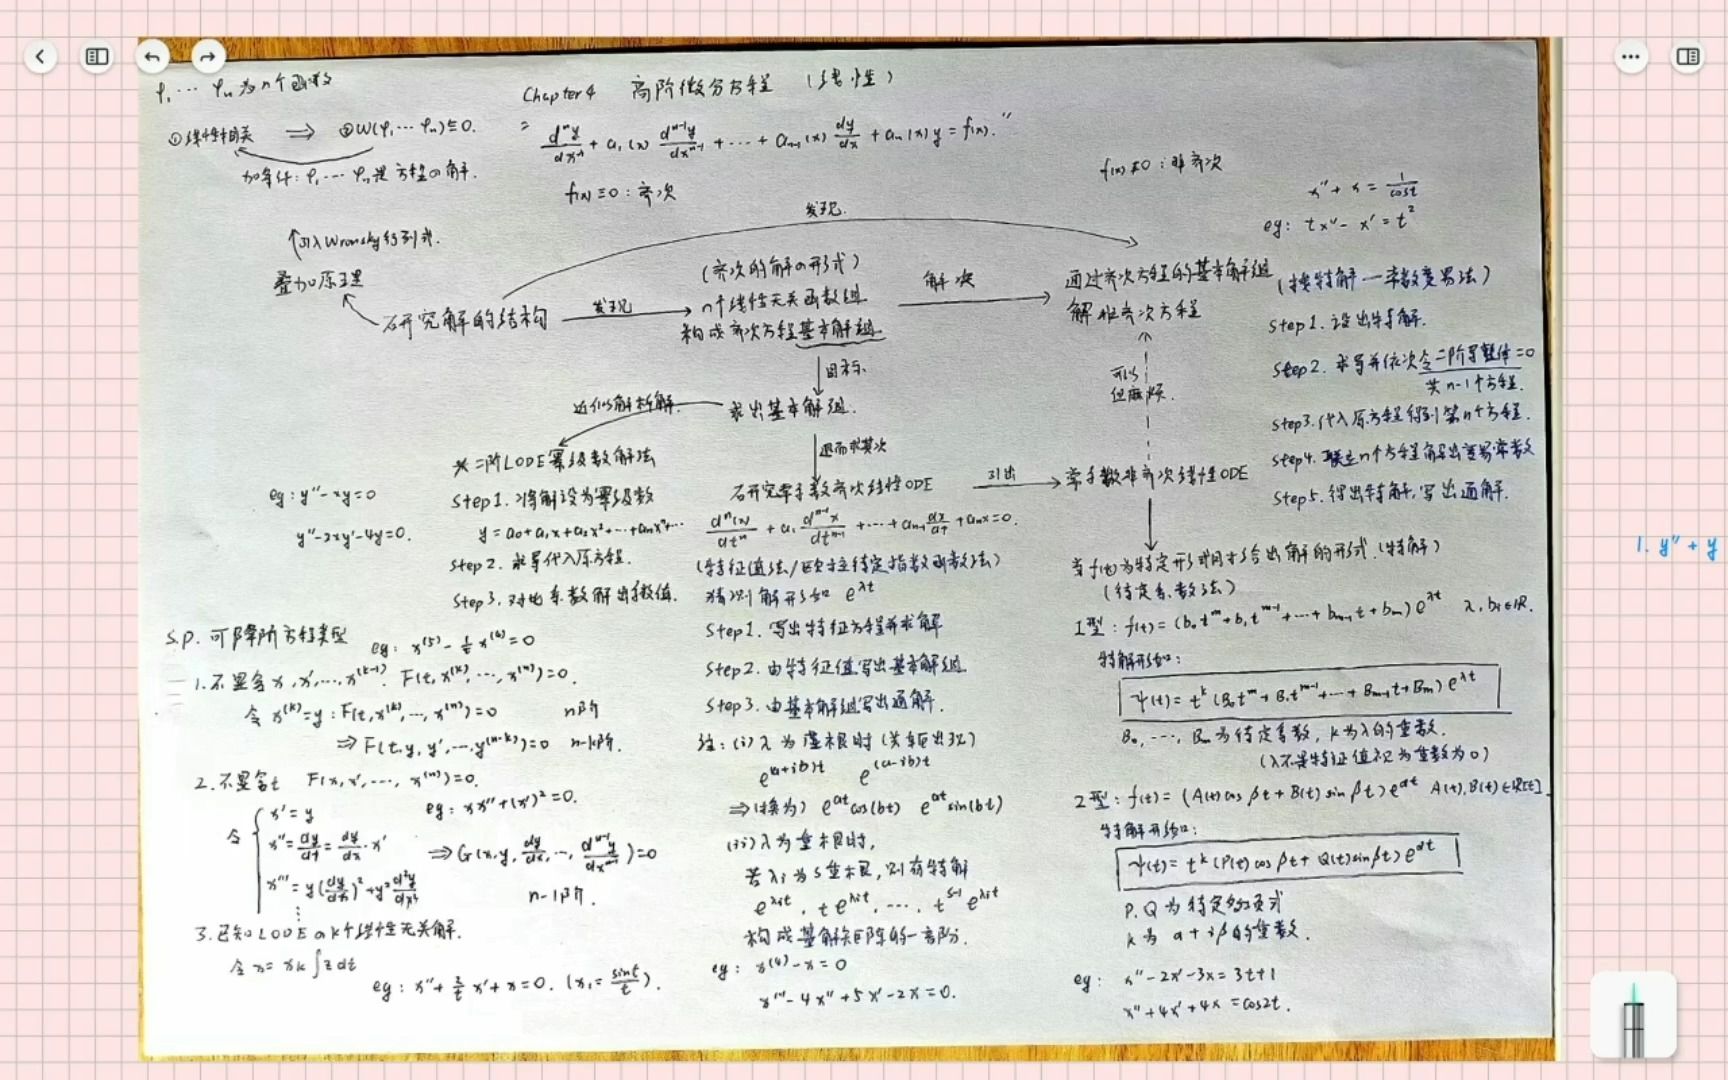 φ₁ … φₙ 为n个函数
① 线性相关 ⇒ ② W(φ₁, … φₙ) ≡ 0.
加条件: φ₁ … φₙ是方程的解.
Chapter 4 高阶微分方程 (线性)
" dⁿy/dxⁿ + a₁(x) dⁿ⁻¹y/dxⁿ⁻¹ + … + aₙ₋₁(x) dy/dx + aₙ(x) y = f(x). "
f(x) ≡ 0 : 齐次
f(x) ≢ 0 : 非齐次
引入Wronsky行列式.
叠加原理
研究解的结构
发现
发现.
(齐次的解の形式)
n个线性无关函数组
构成齐次方程基本解组.
解决
通过齐次方程的基本解组
解非齐次方程
目标
求出基本解组.
近似解析解.
退而求其次
可以
但麻烦.
x" + x = 1/cost
eg: tx" - x' = t²
(找特解—常数变易法)
Step1. 设出特解.
Step2. 求导并依次令二阶导整体=0
共n-1个方程.
Step3. 代入原方程得到第n个方程.
Step4. 联立n个方程解出变易常数
Step5. 得出特解, 写出通解.
* 二阶LODE幂级数解法
Step1. 将解设为幂级数
y = a₀+a₁x+a₂x²+…+aₙxⁿ+…
Step2. 求导代入原方程.
Step3. 对比系数解出系数值.
eg: y"-xy=0
y"-2xy'-4y=0.
研究常系数齐次线性ODE
dⁿ(x)/dtⁿ + a₁ dⁿ⁻¹x/dtⁿ⁻¹ + … + aₙ₋₁ dx/dt + aₙx = 0.
(特征值法/欧拉待定指数函数法)
猜测解形如 e^{λt}
Step1. 写出特征方程并求解
Step2. 由特征值写出基本解组.
Step3. 由基本解组写出通解.
注: (i) λ为虚根时 (共轭出现)
e^{(a+ib)t} e^{(a-ib)t}
⇒ (换为) e^{at}cos(bt) e^{at}sin(bt)
(ii) λ为重根时,
若λᵢ为s重根, 则有特解
e^{λᵢt}, te^{λᵢt}, …, t^{s-1}e^{λᵢt}
构成基解矩阵的一部分.
eg: x⁽⁴⁾-x=0
x'''-4x"+5x'-2x=0.
引出
常系数非齐次线性ODE
当f(t)为特定形式时才给出解的形式.(特解)
(待定系数法)
1型: f(t) = (b₀t^m+b₁t^{m-1}+…+b_{m-1}t+b_m) e^{λt} λ, bᵢ∈R.
特解形如:
ψ(t) = t^k (B₀t^m+B₁t^{m-1}+…+B_{m-1}t+B_m) e^{λt}
B₀, …, B_m为待定系数, k为λ的重数.
(λ不是特征值视为重数为0)
2型: f(t) = (A(t)cos βt + B(t)sin βt) e^{αt} A(t), B(t)∈R[t].
特解形如:
ψ(t) = t^k (P(t)cos βt + Q(t)sin βt) e^{αt}
P. Q为待定多项式
k为 α+iβ的重数.
eg: x"-2x'-3x=3t+1
x"+4x'+4x=cos2t.
S.P. 可降阶方程类型
eg: x⁽⁵⁾ - 1/t x⁽⁴⁾=0
1. 不显含x, x', …, x^{(k-1)}. F(t, x^{(k)}, …, x^{(n)})=0.
令 x^{(k)}=y : F(t, x^{(k)}, …, x^{(n)})=0 n阶
⇒ F(t, y, y', …, y^{(n-k)})=0 n-k阶.
2. 不显含t F(x, x', …, x^{(n)})=0.
eg: xx"+(x')²=0.
令 x'=y
x"=dy/dt=dy/dx·x'
x'''=y(dy/dx)²+y²d²y/dx²
⋮
⇒ G(x, y, dy/dx, …, dⁿ⁻¹y/dxⁿ⁻¹)=0
n-1阶.
3. 已知LODE のk个线性无关解.
令 x = x_k ∫z dt
eg: x"+2/t x'+x=0. (x₁=sint/t).
1. y"+y